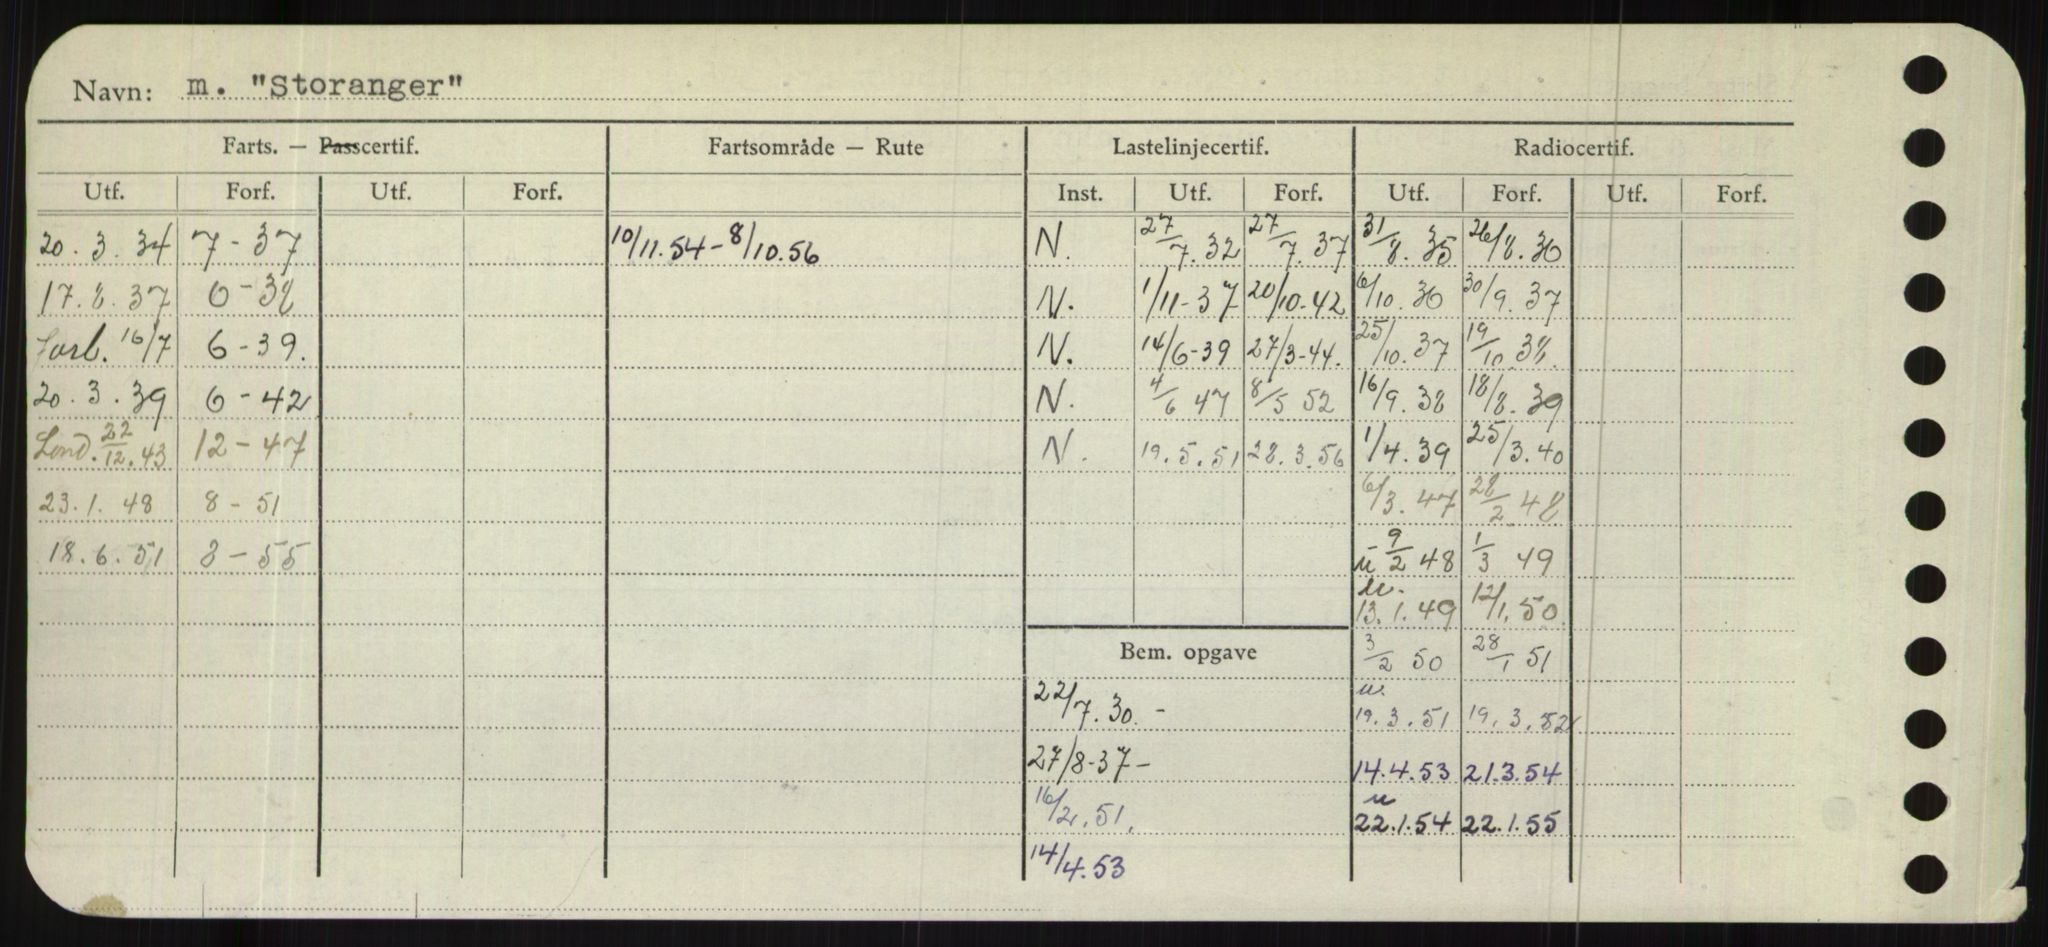 Navn: m. "Storanger"
Farts. — Passcertif. Fartsområde — Rute Lastelinjecertif. Radiocertif.
Utf. Forf. Utf. Forf. Inst. Utf. Forf. Utf. Forf. Utf. Forf.
20.3.34 7-37 10/11.54-8/10.56 N. 27/7.32 27/7.37 31/8.35 26/8.36
17.8.37 6-38 N. 1/11-37 20/10-42 6/10.36 30/9.37
Forl. 16/7 6-39. N. 14/6-39 27/3-44. 25/10.37 19/10 38.
20.3.39 6-42 N. 4/6 47 8/5 52 16/9.38 18/8.39
Lond. 22/12.43 12-47 N. 19.5.51 28.3.56 1/4.39 25/3.40
23.1.48 8-51 6/3.47 28/2 48
18.6.51 8-55 u 9/2 48 1/3 49
u. 13.1.49 12/1.50
Bem. opgave 3/2 50 28/1 51
22/7.30.- u. 19.3.51 19.3.52
27/8-37- 14.4.53 21.3.54
16/2.51. u 22.1.54 22.1.55
14/4.53